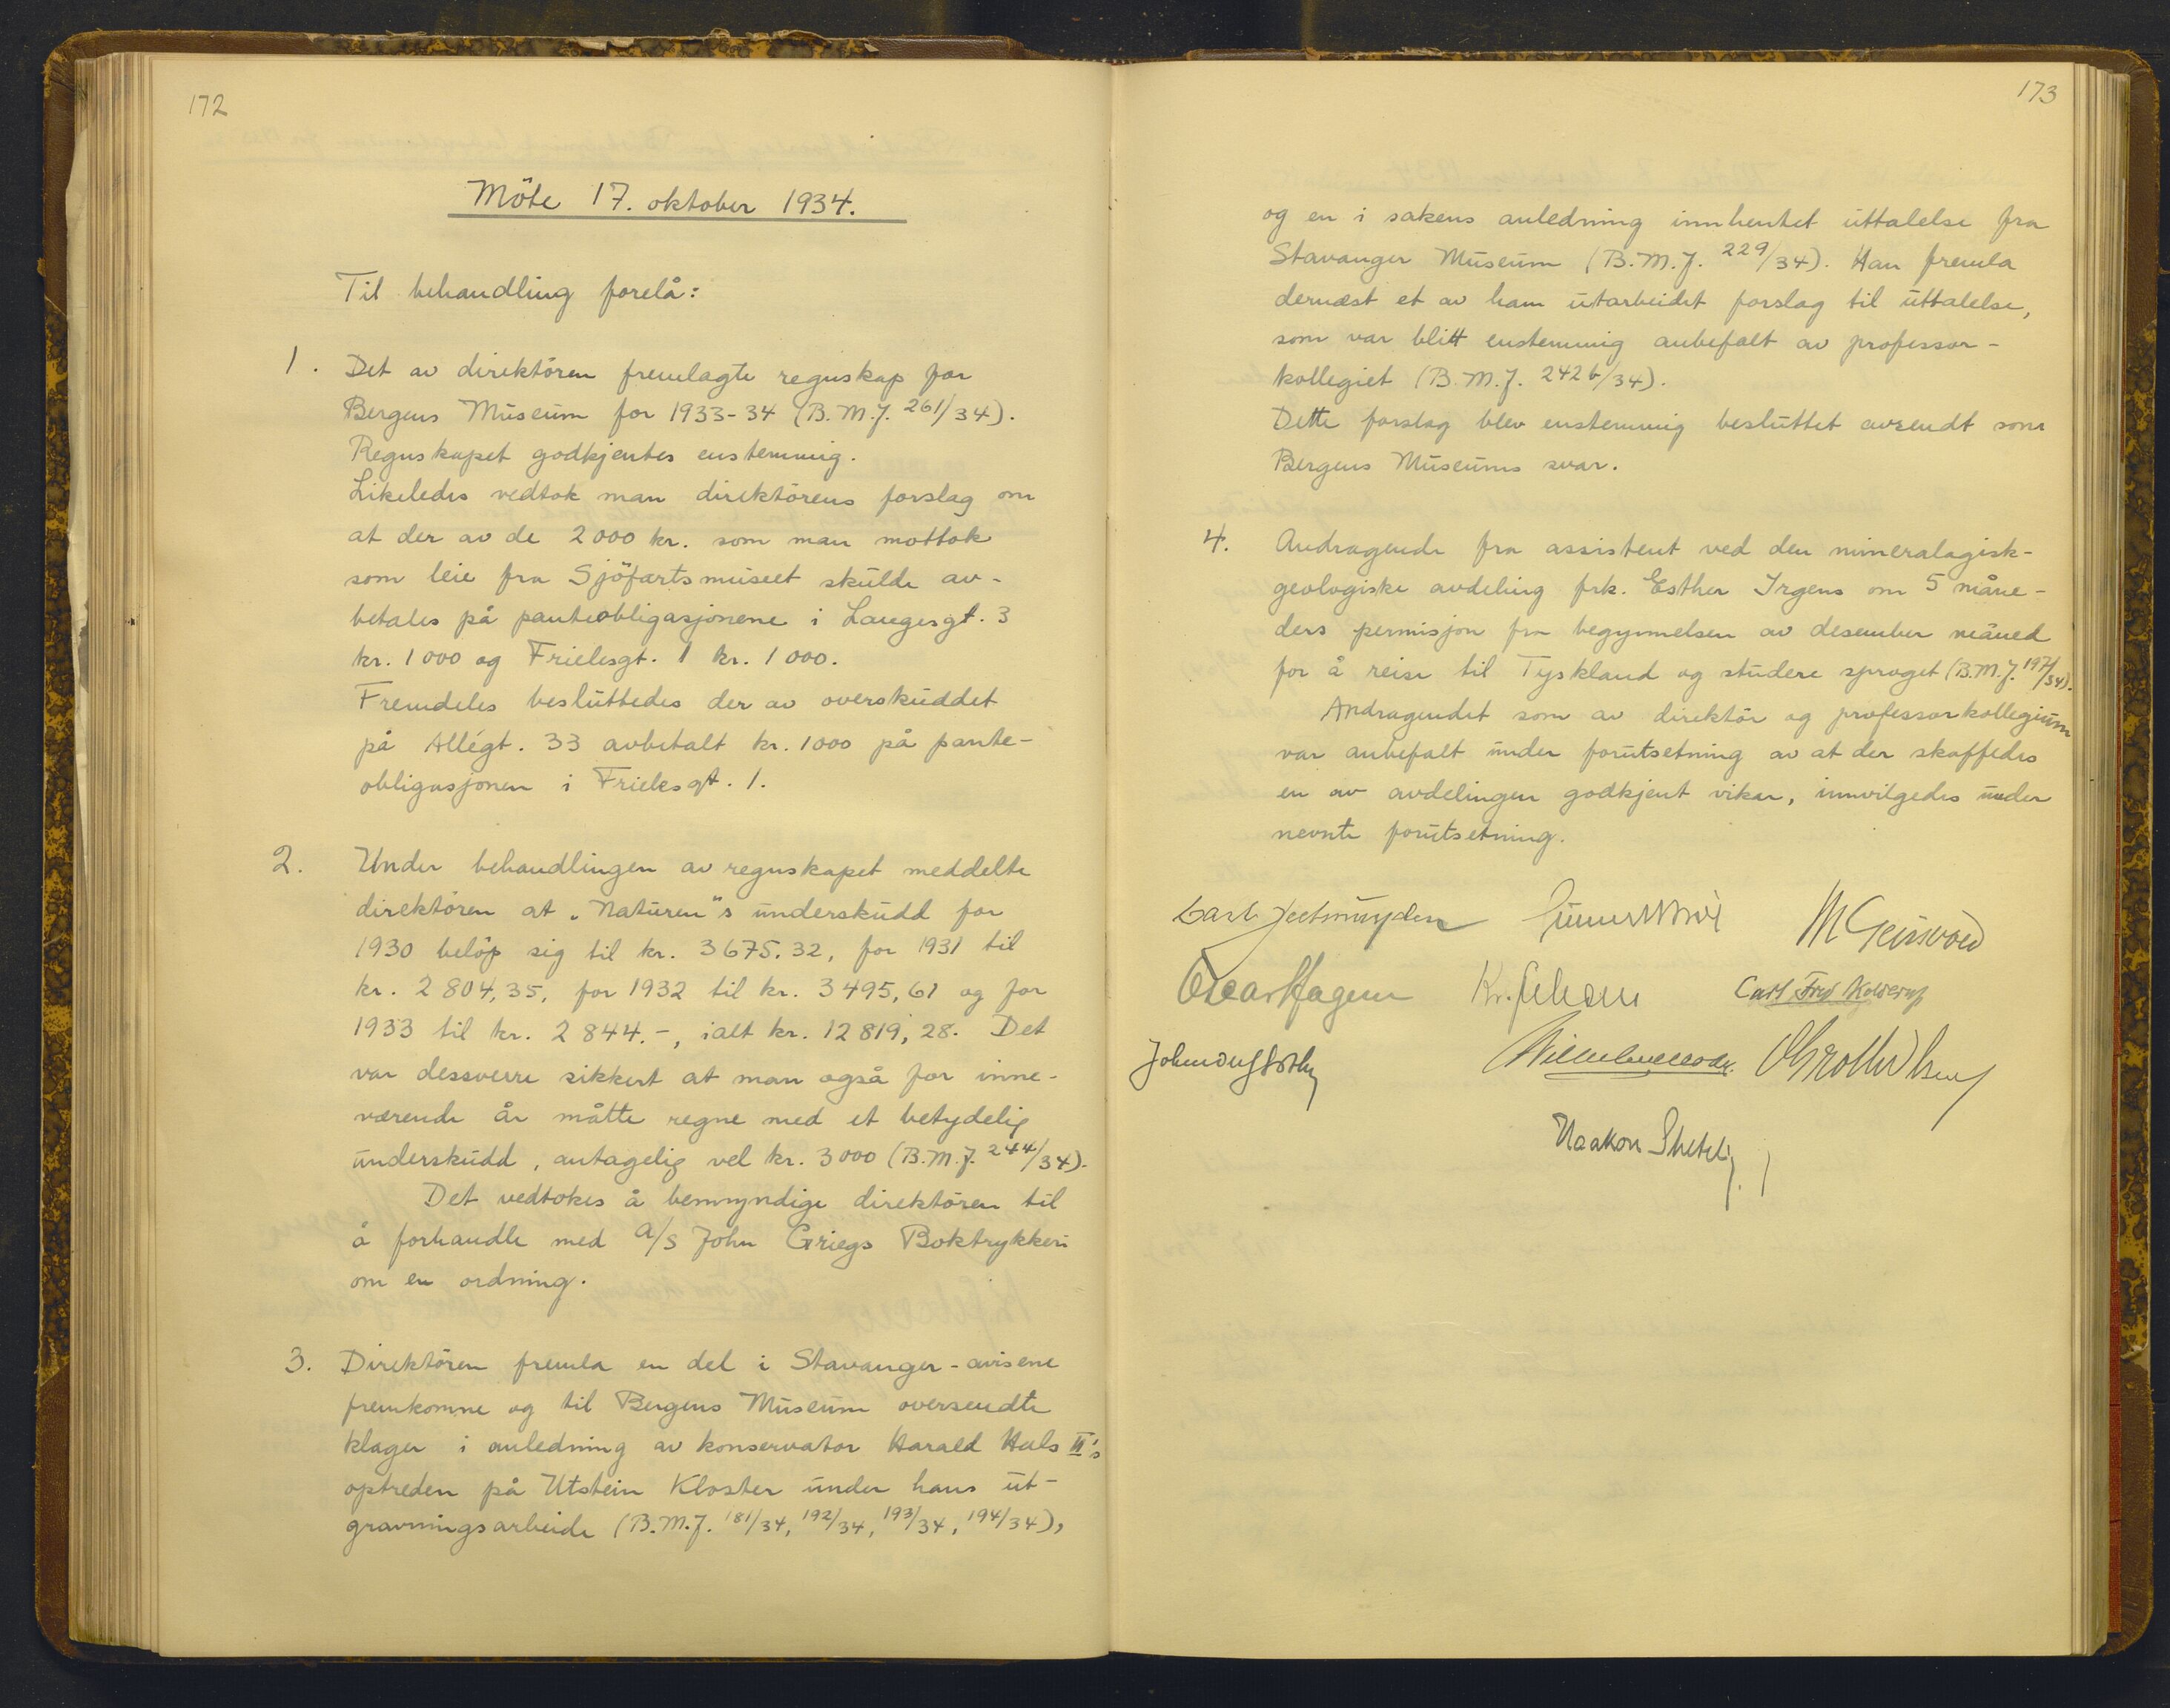 172
Möte 17. oktober 1934.
Til behandling forelå:
1. Det av direktören fremlagte regnskap for
Bergens Museum for 1933-34 (B.M.J. 261/34).
Regnskapet godkjentes enstemmig.
Likeledes vedtok man direktörens forslag om
at der av de 2000 kr. som man mottok
som leie fra Sjöfartsmuseet skulde av-
betales på panteobligasjonene i Langesgt. 3
kr. 1000 og Frielesgt. 1 kr. 1000.
Fremdeles besluttedes der av overskuddet
på Allégt. 33 avbetalt kr. 1000 på pante-
obligasjonen i Frielesgt. 1.
2. Under behandlingen av regnskapet meddelte
direktören at „Naturen"s underskudd for
1930 belöp sig til kr. 3675.32, for 1931 til
kr. 2804,35, for 1932 til kr. 3495,61 og for
1933 til kr. 2844.-, ialt kr. 12819,28. Det
var dessverre sikkert at man også for inne-
værende år måtte regne med et betydelig
underskudd, antagelig vel kr. 3000 (B.M.J. 244/34).
Det vedtokes å bemyndige direktören til
å forhandle med A/S John Griegs Boktrykkeri
om en ordning.
3. Direktören fremla en del i Stavanger-avisene
fremkomne og til Bergens Museum oversendte
klager i anledning av konservator Harald Hals II's
optreden på Utstein Kloster under hans ut-
gravningsarbeide (B.M.J. 181/34, 192/34, 193/34, 194/34),
173
og en i sakens anledning innhentet uttalelse fra
Stavanger Museum (B.M.J. 229/34). Han fremla
dernæst et av ham utarbeidet forslag til uttalelse,
som var blitt enstemmig anbefalt av professor-
kollegiet (B.M.J. 242b/34).
Dette forslag blev enstemmig besluttet avsendt som
Bergens Museums svar.
4. Andragende fra assistent ved den mineralogisk-
geologiske avdeling frk. Esther Irgens om 5 måne-
ders permisjon fra begynnelsen av desember måned
for å reise til Tyskland og studere sproget (B.M.J. 197/34).
Andragendet som av direktör og professorkollegium
var anbefalt under forutsetning av at der skaffedes
en av avdelingen godkjent vikar, innvilgedes under
nevnte forutsetning.
Carl Fred Kolderup
Haakon Shetelig.